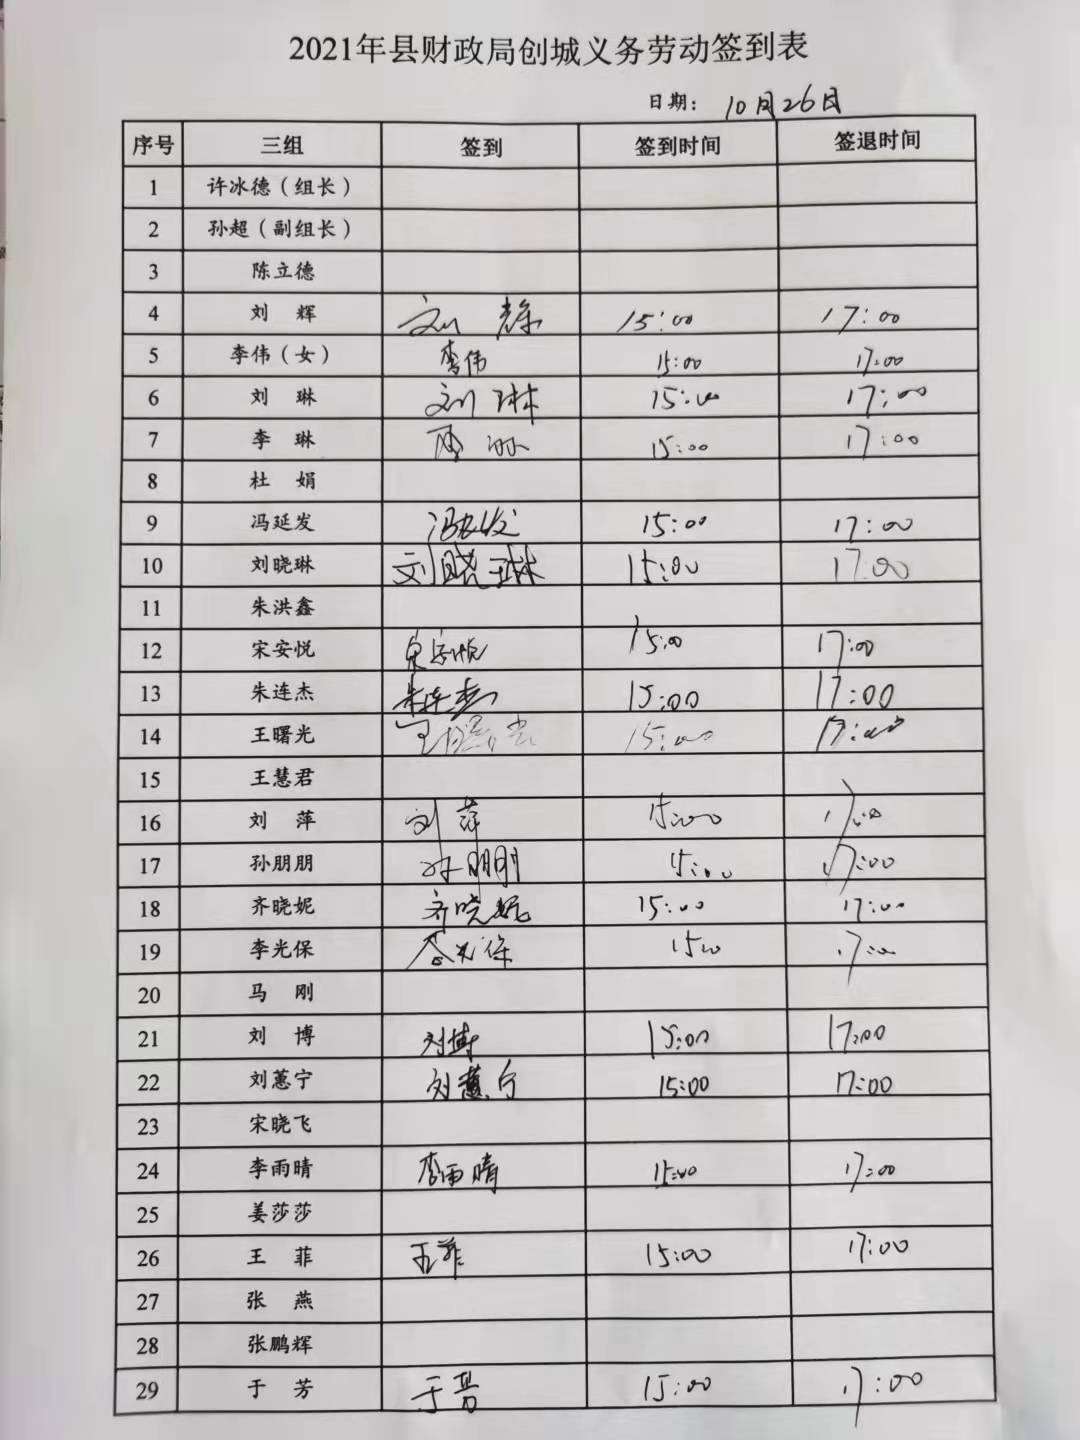 2021年县财政局创城义务劳动签到表
日期： 10月26日
序号 三组 签到 签到时间 签退时间
1 许冰德（组长）
2 孙超（副组长）
3 陈立德
4 刘 辉 刘 辉 15:00 17:00
5 李伟（女） 李伟 15:00 17:00
6 刘 琳 刘 琳 15:00 17:00
7 李 琳 15:00 17:00
8 杜 娟
9 冯延发 冯延发 15:00 17:00
10 刘晓琳 刘晓琳 15:00 17:00
11 朱洪鑫
12 宋安悦 宋安悦 15:00 17:00
13 朱连杰 朱连杰 15:00 17:00
14 王曙光 王曙光 15:00 17:00
15 王慧君
16 刘 萍 刘 萍 15:00 17:00
17 孙朋朋 孙朋朋 15:00 17:00
18 齐晓妮 齐晓妮 15:00 17:00
19 李光保 李光保 15:00 17:00
20 马 刚
21 刘 博 刘博 15:00 17:00
22 刘蕙宁 刘蕙宁 15:00 17:00
23 宋晓飞
24 李雨晴 李雨晴 15:00 17:00
25 姜莎莎
26 王 菲 王菲 15:00 17:00
27 张 燕
28 张鹏辉
29 于 芳 于芳 15:00 17:00